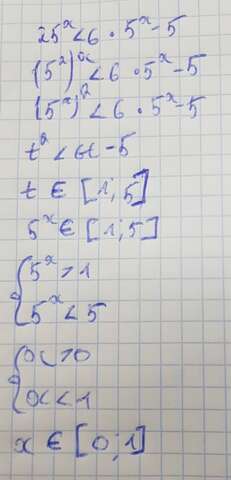 25ˣ < 6 · 5ˣ - 5
(5²)ˣ < 6 · 5ˣ - 5
(5ˣ)² < 6 · 5ˣ - 5
t² < 6t - 5
t ∈ [1; 5]
5ˣ ∈ [1; 5]
{ 5ˣ > 1
5ˣ < 5
{ x > 0
x < 1
x ∈ [0; 1]